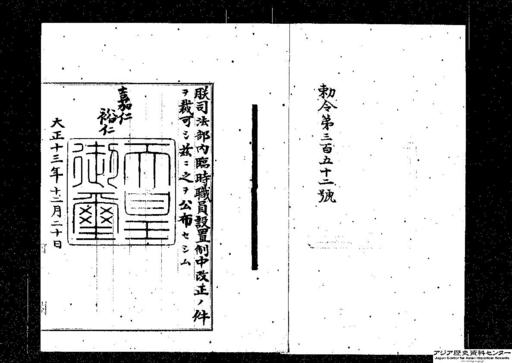 勅令第三百五十二號
朕司法部內臨時職員設置制中改正ノ件
ヲ裁可シ茲ニ之ヲ公布セシム
嘉仁
裕仁
天皇
御璽
大正十三年十二月二十日
アジア歴史資料センター
Japan Center for Asian Historical Records